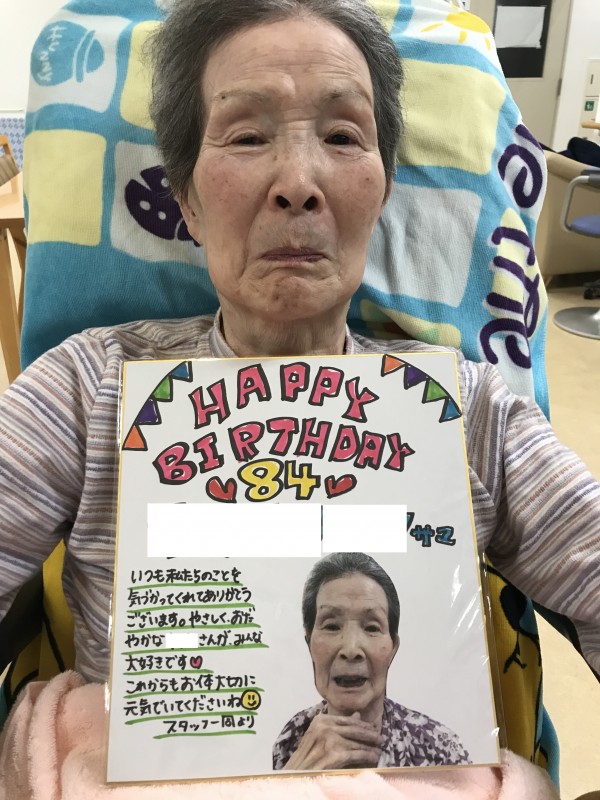 HUNNY
HAPPY
BIRTHDAY
84
サマ
いつも私たちのことを
気づかってくれてありがとう
ございます。やさしく、おだ
やかな さんが、みんな
大好きです♥
これからもお体大切に
元気でいてくださいね
スタッフ一同より